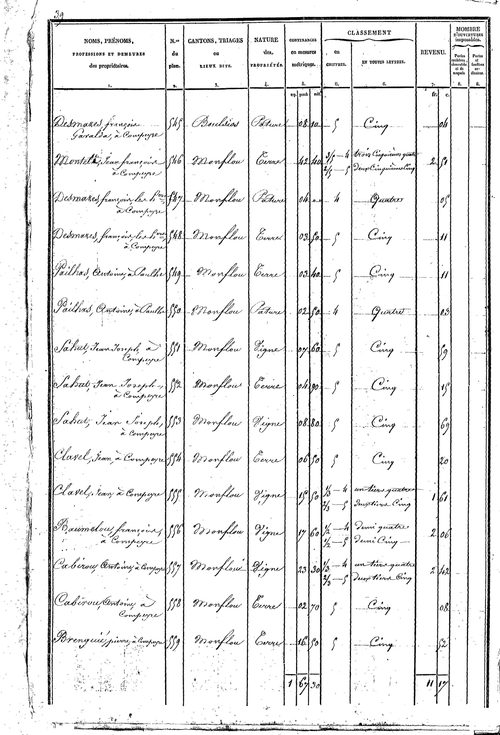 39
NOMS, PRÉNOMS, PROFESSIONS ET DEMEURES des propriétaires. | N.os du plan. | CANTONS, TRIAGES ou LIEUX DITS. | NATURE des PROPRIÉTÉS. | CONTENANCES en mesures métriques. | CLASSEMENT en CHIFFRES. | EN TOUTES LETTRES. | REVENU. | NOMBRE D'OUVERTURES imposables.
1. 2. 3. 4. 5. 6. 7. 8.
Desmares, françois
à Compeyre 545 Pature 08 10 5 Cinq 04
Montels, Jean françois
à Compeyre 546 Monflou Terre 42 40 3/5 — 4 trois Cinquièmes quatre
2/5 — 5 deux Cinquièmes Cinq 2 50
Desmares, françois, les h.ers
à Compeyre 547 Monflou Pature 04 4 Quatre 05
Desmares, françois, les h.ers
à Compeyre 548 Monflou Terre 03 50 5 Cinq 11
Pailhas, Antoine, à Paulhe 549 Monflou Terre 03 40 5 Cinq 11
Pailhas, Antoine, à Paulhe 550 Monflou Pature 02 50 4 Quatre 03
Sahut, Jean Joseph, à
Compeyre 551 Monflou Vigne 07 60 5 Cinq 59
Sahut, Jean Joseph,
à Compeyre 552 Monflou Terre 04 90 5 Cinq 15
Sahut, Jean Joseph,
à Compeyre 553 Monflou Vigne 08 80 5 Cinq 69
Clavel, Jean, à Compeyre 554 Monflou Terre 06 50 5 Cinq 20
Clavel, Jean, à Compeyre 555 Monflou Vigne 15 50 1/3 — 4 un tiers quatre
2/3 — 5 deux tiers Cinq 1 60
Baumelou, françois,
à Compeyre 556 Monflou Vigne 17 60 1/2 — 4 demi quatre
1/2 — 5 demi Cinq 2 06
Cabirou, Antoine, à Compeyre 557 Monflou Vigne 23 30 1/3 — 4 un tiers quatre
2/3 — 5 deux tiers Cinq 2 42
Cabirou, Antoine, à
Compeyre 558 Monflou Terre 02 70 5 Cinq 08
Brenguié, pierre, à Compeyre 559 Monflou Terre 16 50 5 Cinq 52
1 67 30 11 17